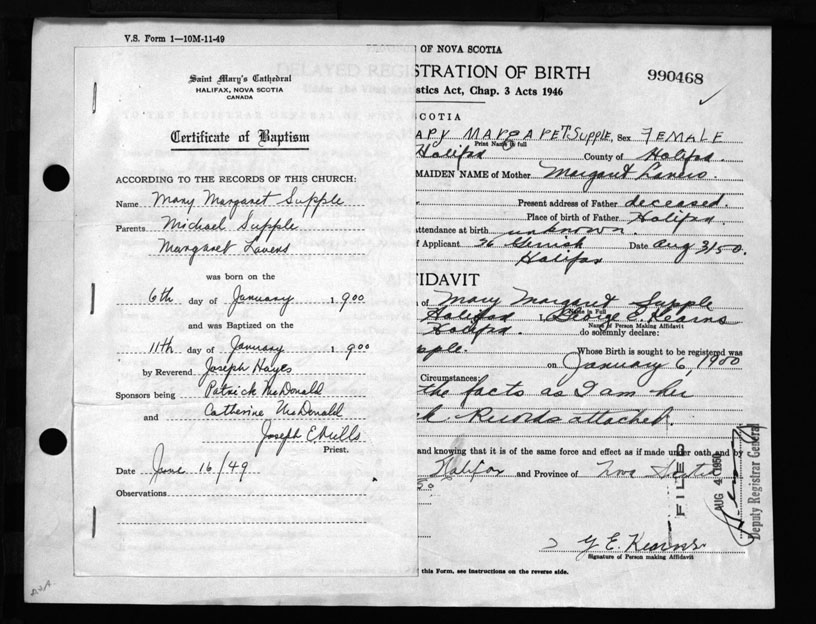 V.S. Form 1—10M-11-49
Saint Mary's Cathedral
HALIFAX, NOVA SCOTIA
CANADA
Certificate of Baptism
ACCORDING TO THE RECORDS OF THIS CHURCH:
Name Mary Margaret Supple
Parents Michael Supple
Margaret Lavens
was born on the
6th day of January 1 900
and was Baptized on the
11th day of January 1 900
by Reverend Joseph Hayes
Sponsors being Patrick McDonald
and Catherine McDonald
Joseph E Mills
Priest.
Date June 16/49
Observations
OF NOVA SCOTIA
DELAYED REGISTRATION OF BIRTH
990468
stics Act, Chap. 3 Acts 1946
SCOTIA
ARY MARGARET SUPPLE, Sex FEMALE
Print Name in full
Halifax County of Halifax.
MAIDEN NAME of Mother Margaret
Present address of Father deceased.
Place of birth of Father Halifax.
ttendance at birth unknown.
f Applicant 26 Gerrish Date Aug 3/50.
Halifax
FIDAVIT
of Mary Margaret Supple
Name in Full
Halifax I, George E. Kearns
Name of Person Making Affidavit
Halifax. do solemnly declare:
pple. Whose Birth is sought to be registered was
on January 6, 1900
Circumstances)
the facts as I am her
Records attached.
and knowing that it is of the same force and effect as if made under oath and by
Halifax and Province of Nova Scotia
50
FILED
AUG 4 1950
Deputy Registrar General
G E. Kearns
Signature of Person making Affidavit
this Form, see instructions on the reverse side.